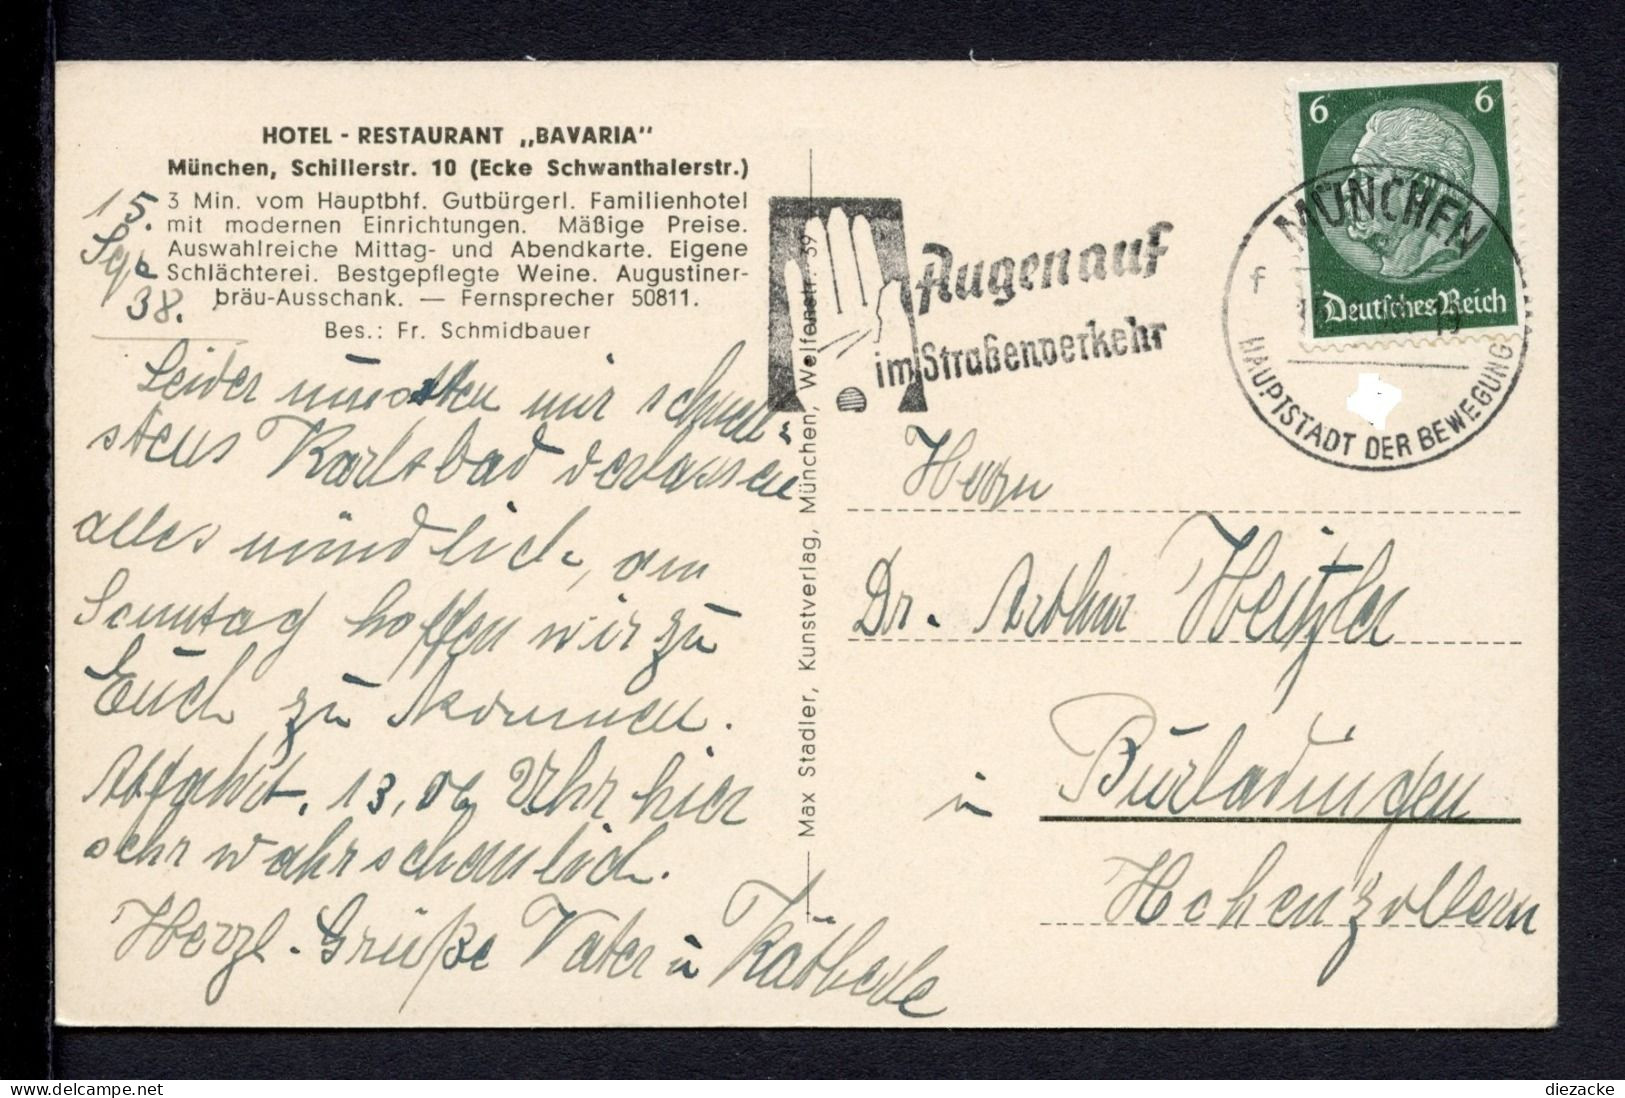 HOTEL - RESTAURANT „BAVARIA"
München, Schillerstr. 10 (Ecke Schwanthalerstr.)
3 Min. vom Hauptbhf. Gutbürgerl. Familienhotel
mit modernen Einrichtungen. Mäßige Preise.
Auswahlreiche Mittag- und Abendkarte. Eigene
Schlächterei. Bestgepflegte Weine. Augustiner-
bräu-Ausschank. — Fernsprecher 50811.
Bes.: Fr. Schmidbauer
15.
Sept
38.
Leider mussten wir schnell-
stens Karlsbad verlassen
alles mündlich, am
Sonntag hoffen wir zu
Euch zu kommen.
Abfahrt. 13,06 Uhr hier
sehr wahrscheinlich.
Herzl. Grüße Vater u Kätherle
Max Stadler, Kunstverlag, München, Welfenstr. 39
Augen auf
im Straßenverkehr
6 6
Deutsches Reich
MÜNCHEN
f
19
HAUPTSTADT DER BEWEGUNG
Herrn
Dr. Arthur Heitzler
in Burladingen
Hohenzollern
diezacke